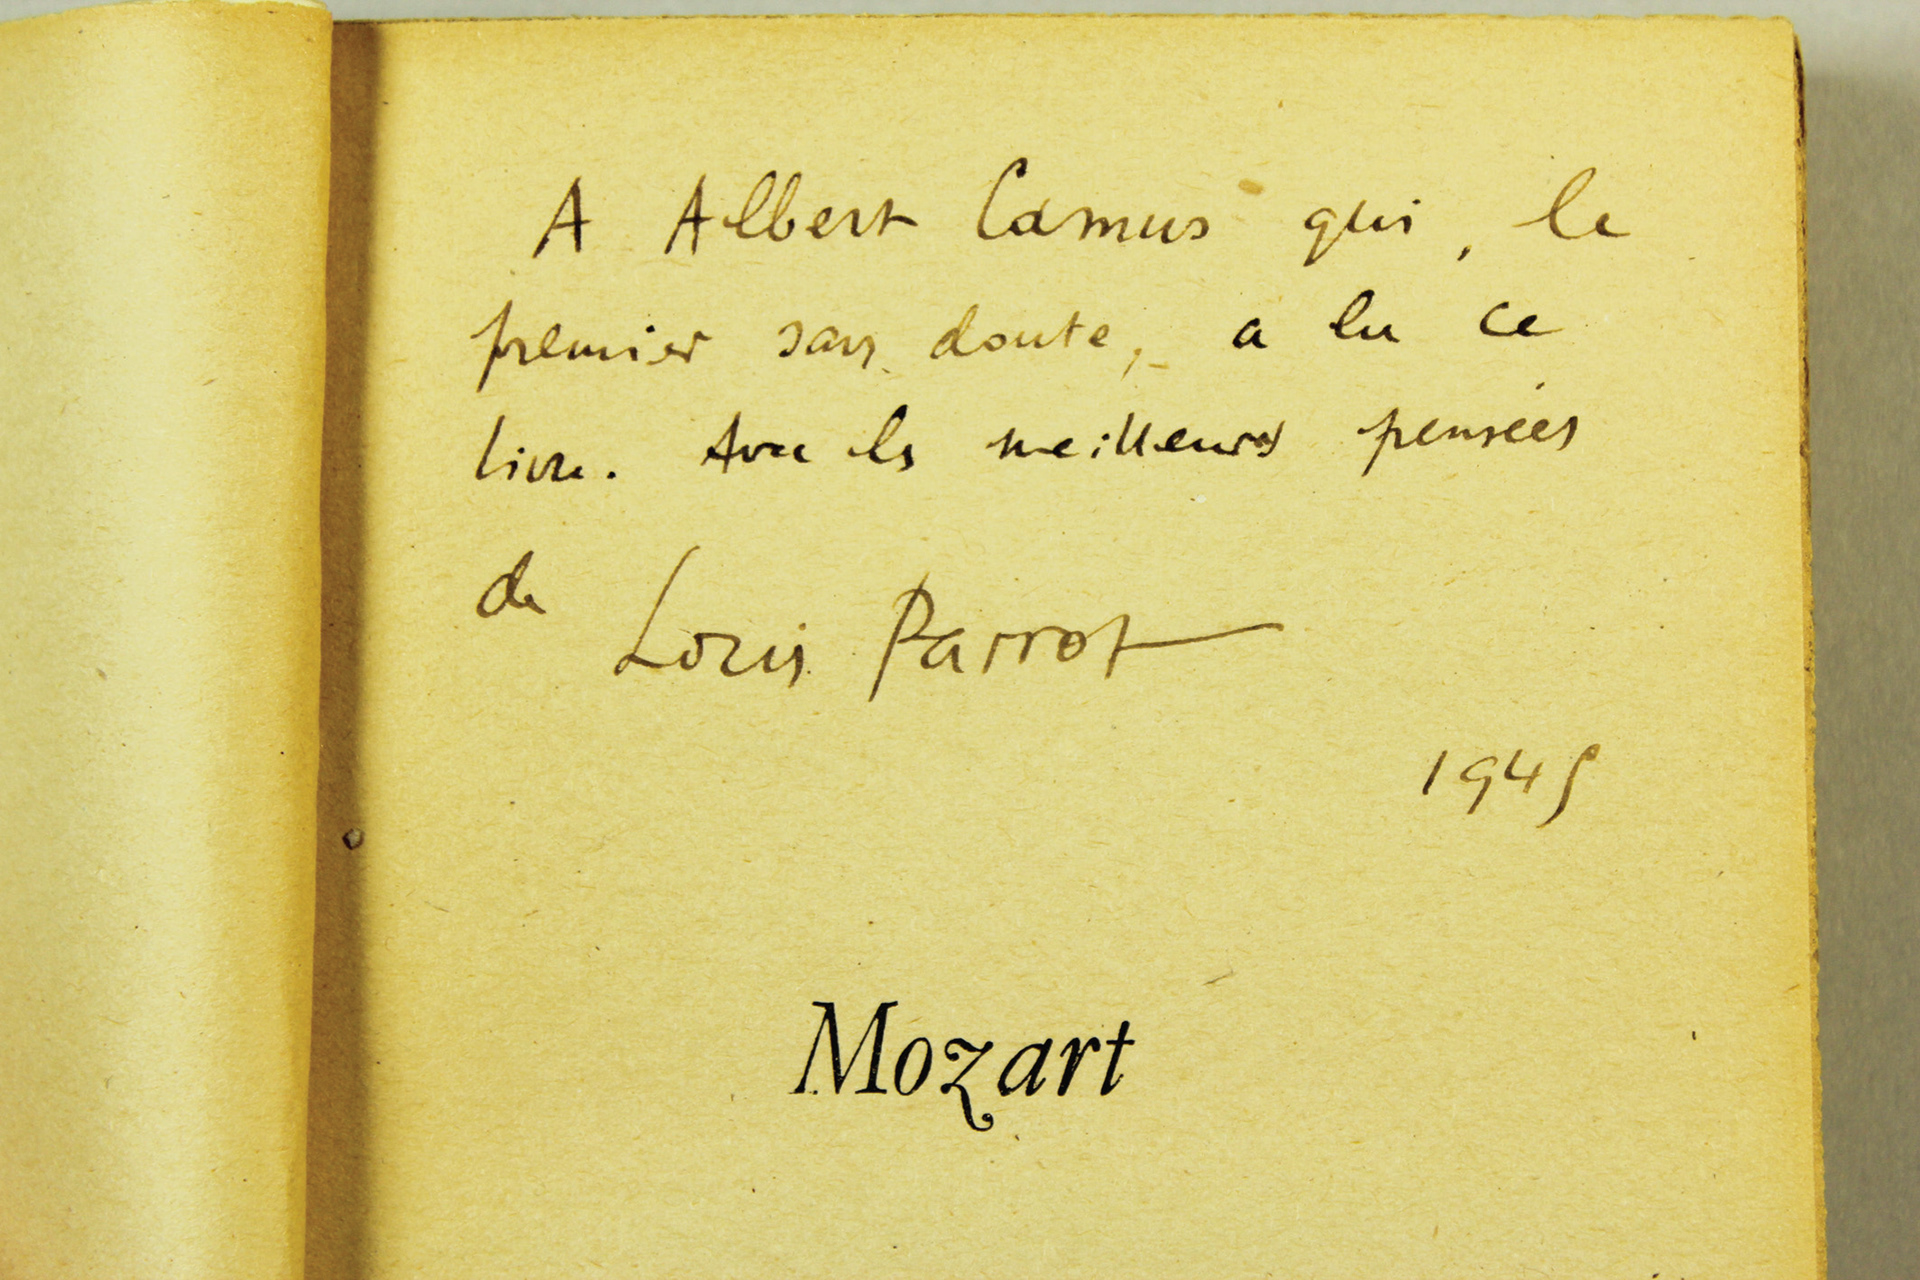 A Albert Camus qui, le
premier sans doute, a lu ce
livre. Avec les meilleures pensées
de Louis Parrot
1945
Mozart